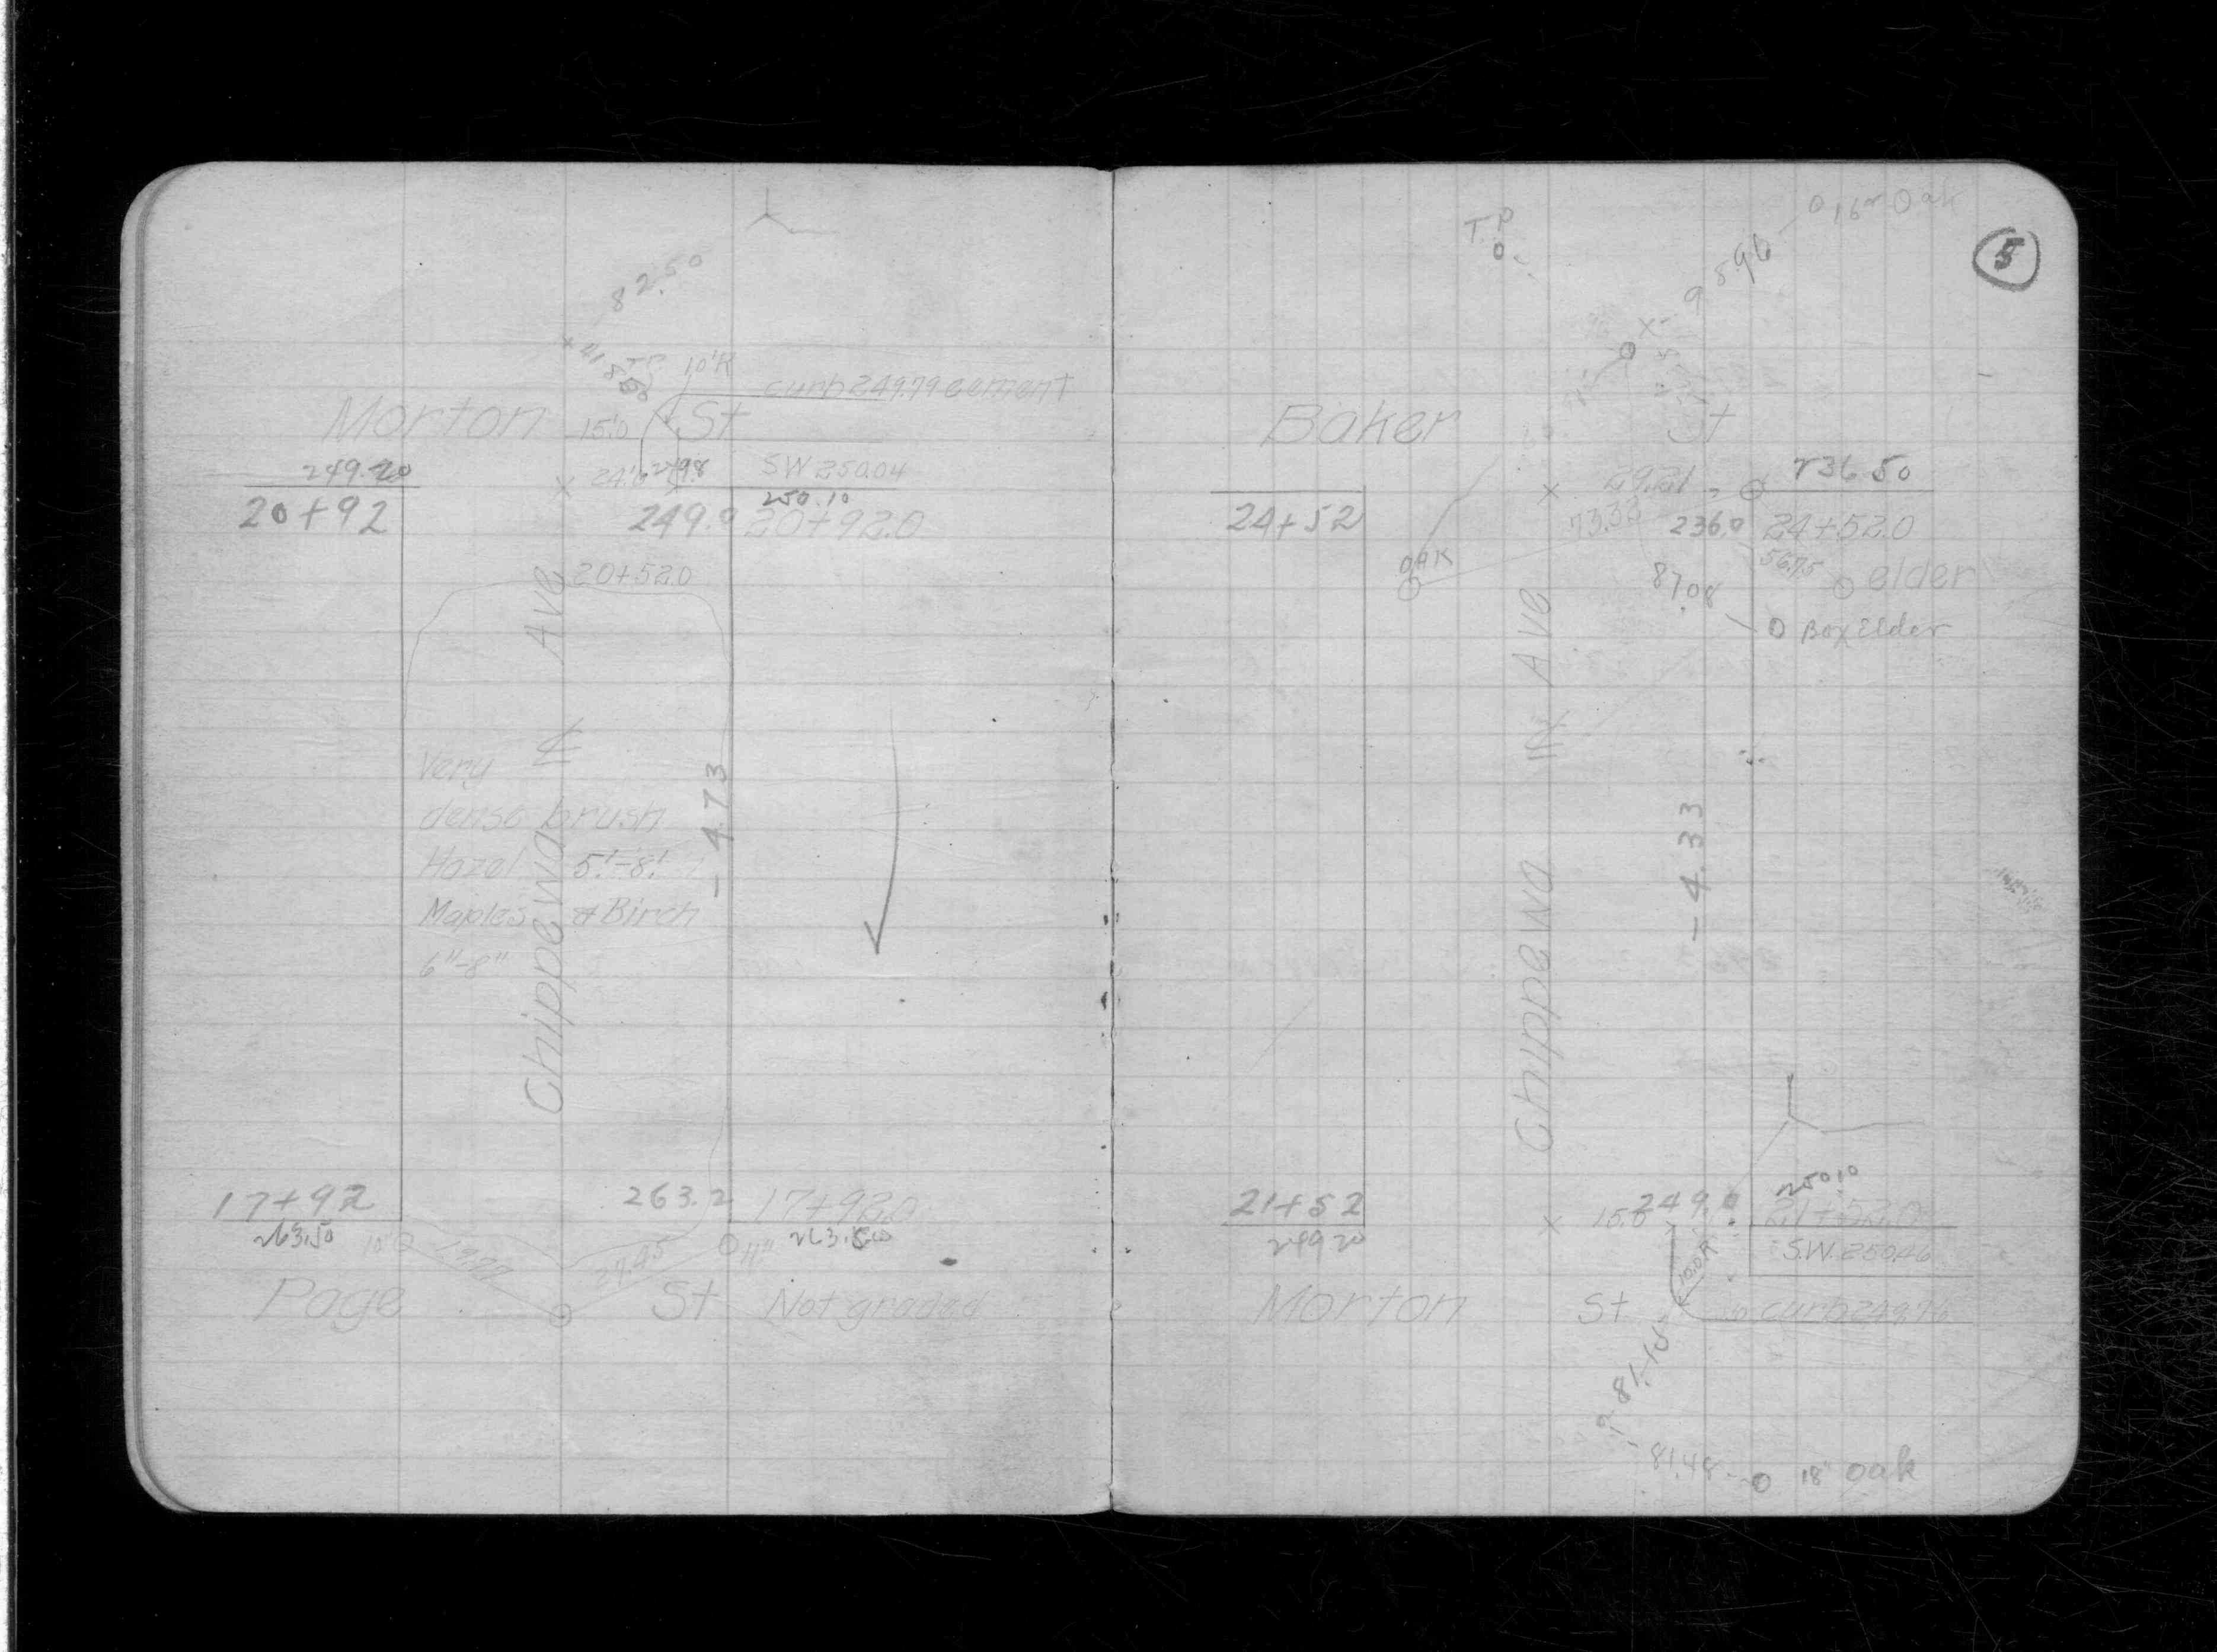 82.50
41.80
T.P.
10'R
curb 249.79 cement
Morton St
15.0
249.20
24.6
249.8
S.W. 250.04
250.10
20+92
249.9
20+92.0
20+52.0
Chippewa Ave
℄
Very
dense brush
Hazel 5'-8'
Maples & Birch
6"-8"
-4.73
17+92
263.2
17+92.0
263.50
10"
27.45
11"
Page St Not graded
T.P.
16" Oak
5
95.96
Baker St
29.21
236.50
24+52
73.32
236.0
24+52.0
oak
56.75
elder
87.08
Box Elder
Chippewa Ave
-4.33
250.10
21+52
15.0
249.9
21+52.0
249.20
S.W. 250.46
10.0R
Morton St
curb 249.76
81.15
81.48
18" oak